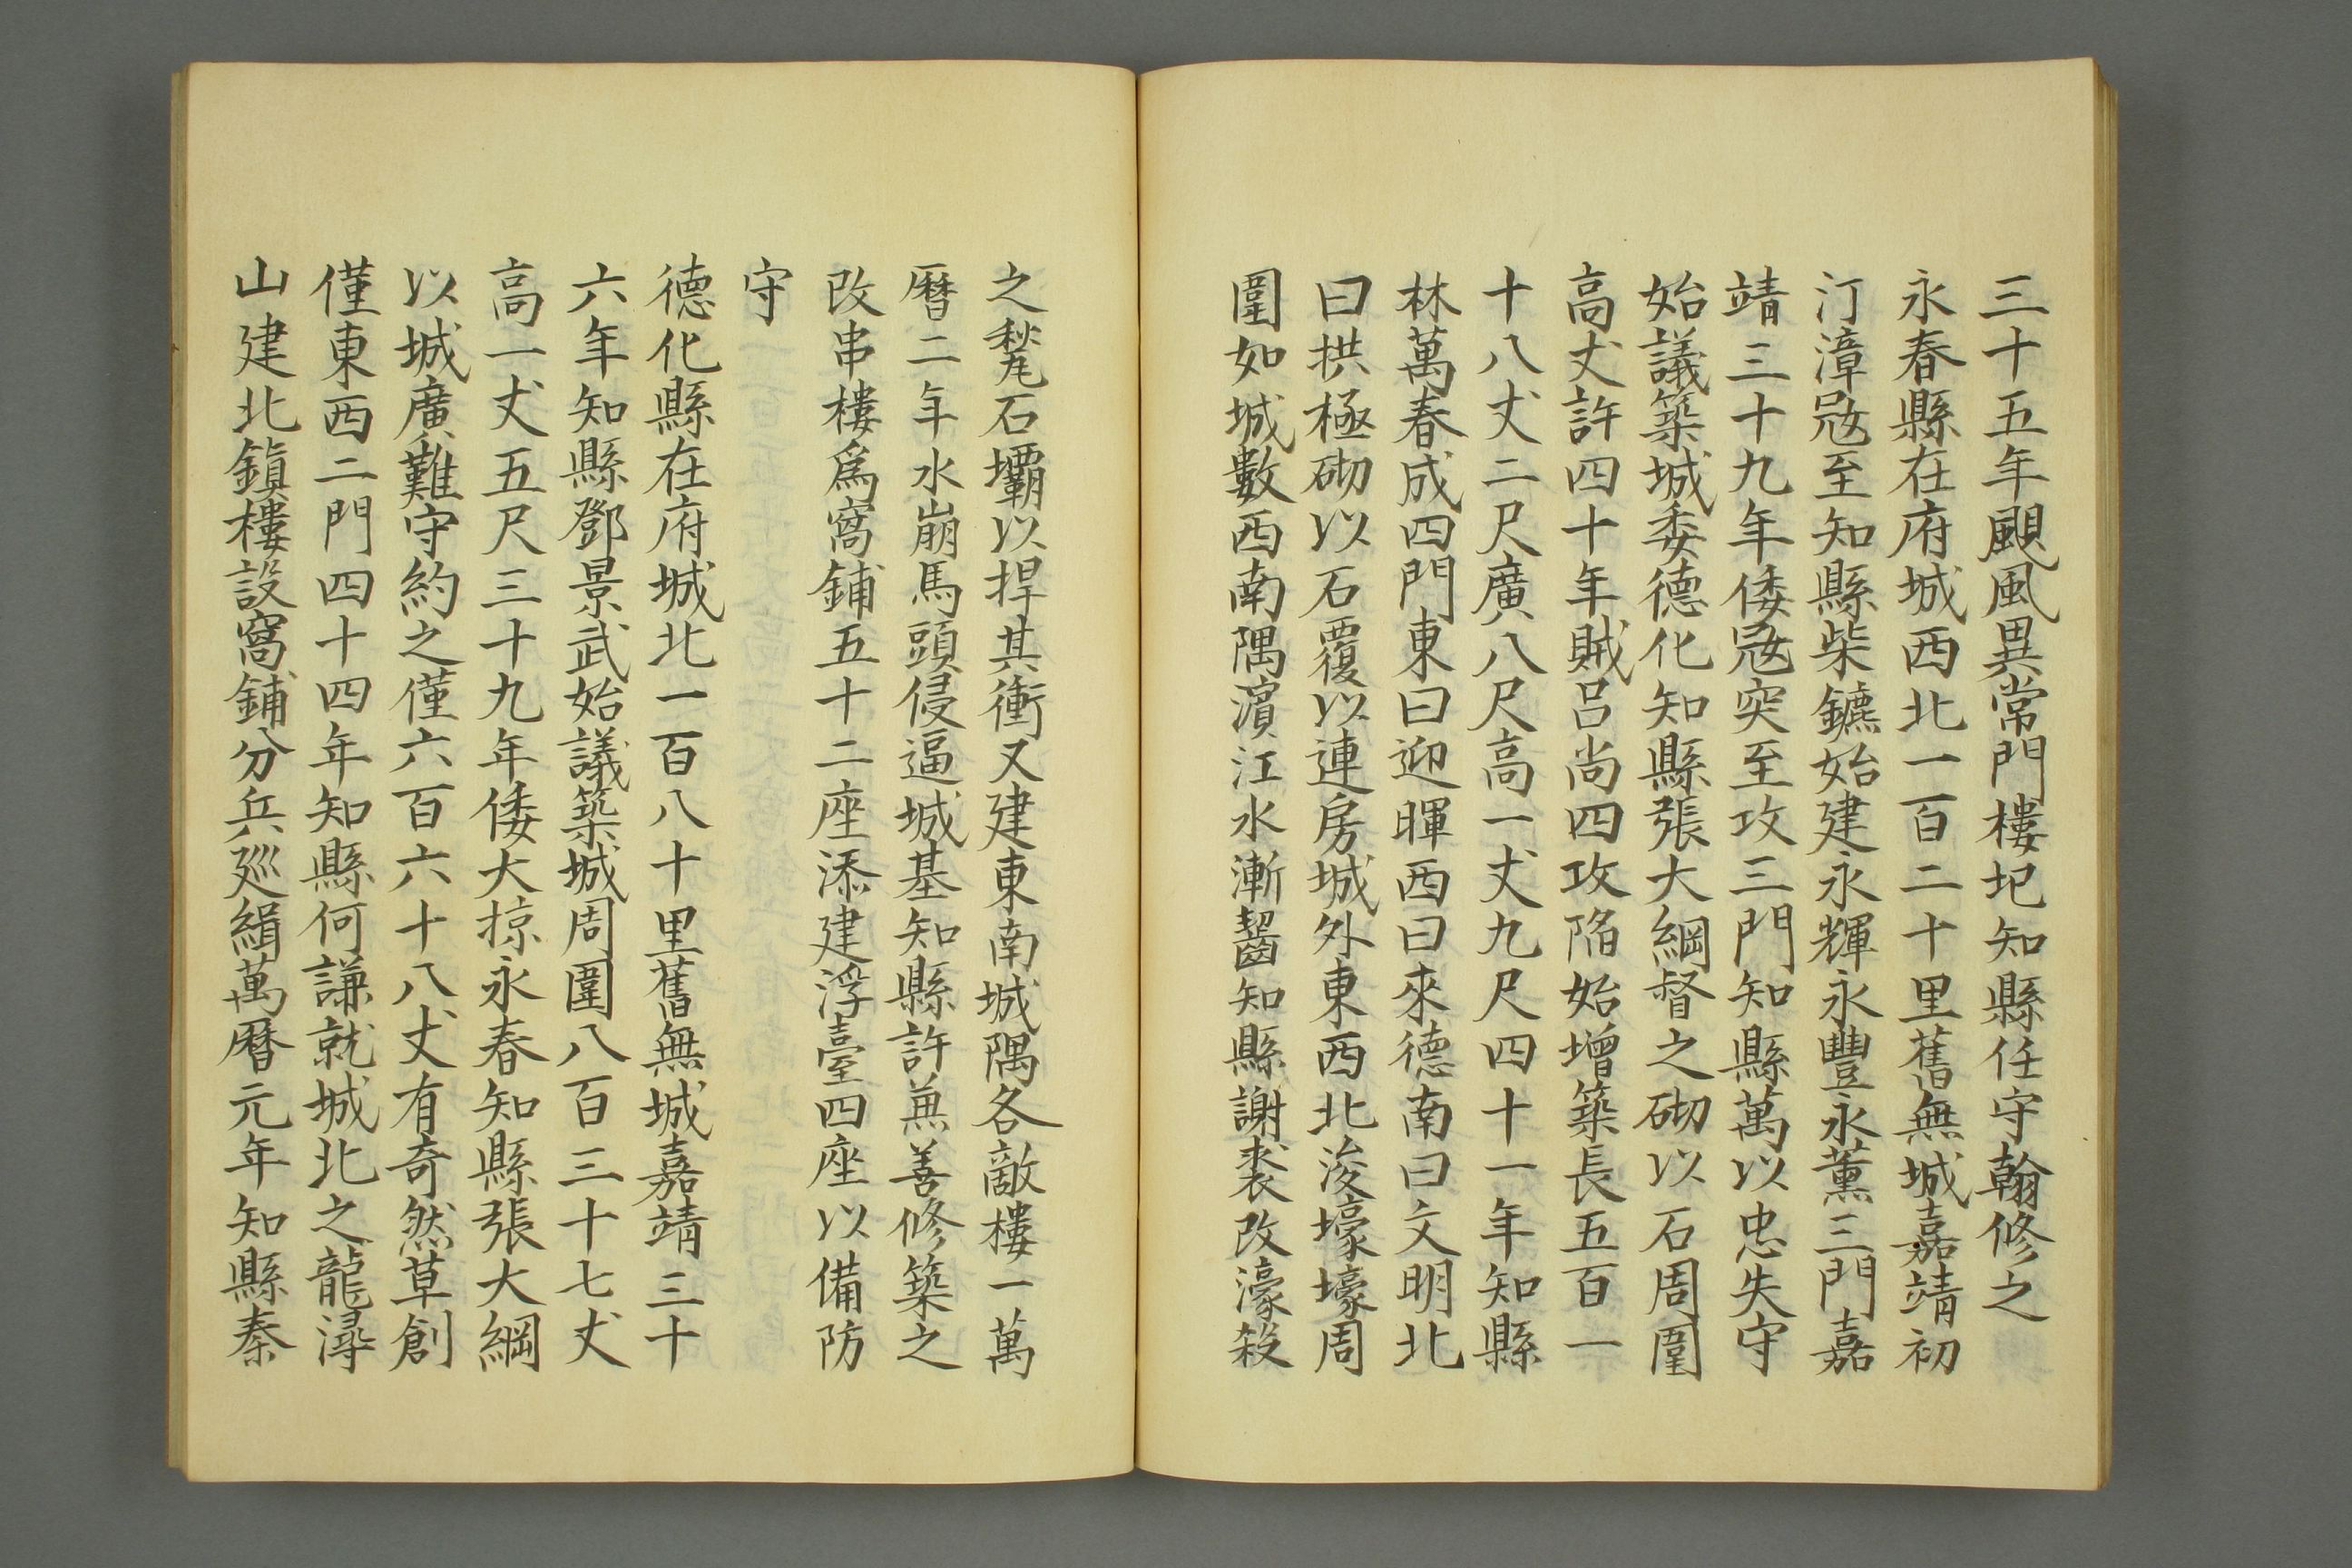 三十五年颶風異常門樓圮知縣任守翰修之
永春縣在府城西北一百二十里舊無城嘉靖初
汀漳冦至知縣柴鑣始建永輝永豐永薰三門嘉
靖三十九年倭冦突至攻三門知縣萬以忠失守
始議築城委德化知縣張大綱督之砌以石周圍
高丈許四十年賊吕尚四攻陷始增築長五百一
十八丈二尺廣八尺高一丈九尺四十一年知縣
林萬春成四門東曰迎暉西曰來德南曰文明北
曰拱極砌以石覆以連房城外東西北浚壕壕周
圍如城數西南隅濵江水漸齧知縣謝裘改濠殺
之甃石壩以捍其衝又建東南城隅各敵樓一萬
曆二年水崩馬頭侵逼城基知縣許兼善修築之
改串樓爲窩鋪五十二座添建浮臺四座以備防
守
德化縣在府城北一百八十里舊無城嘉靖三十
六年知縣鄧景武始議築城周圍八百三十七丈
高一丈五尺三十九年倭大掠永春知縣張大綱
以城廣難守約之僅六百六十八丈有奇然草創
僅東西二門四十四年知縣何謙就城北之龍潯
山建北鎮樓設窩鋪分兵廵緝萬曆元年知縣秦